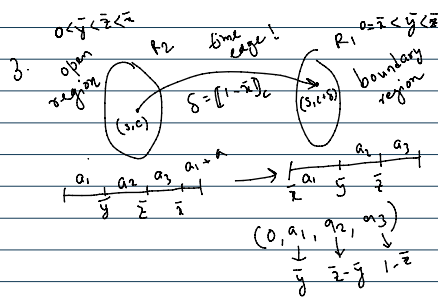 0<ȳ<z̄<x̄
0=x̄<ȳ<z̄
3.
open region
R2
time edge!
R1
boundary region
δ=⟦1-x̄⟧c
(s,c)
(s,c+δ)
a1 a2 a3
ȳ z̄ x̄
a1 a2 a3
x̄ ȳ z̄
(0, a1, a2, a3)
ȳ z̄-ȳ 1-z̄